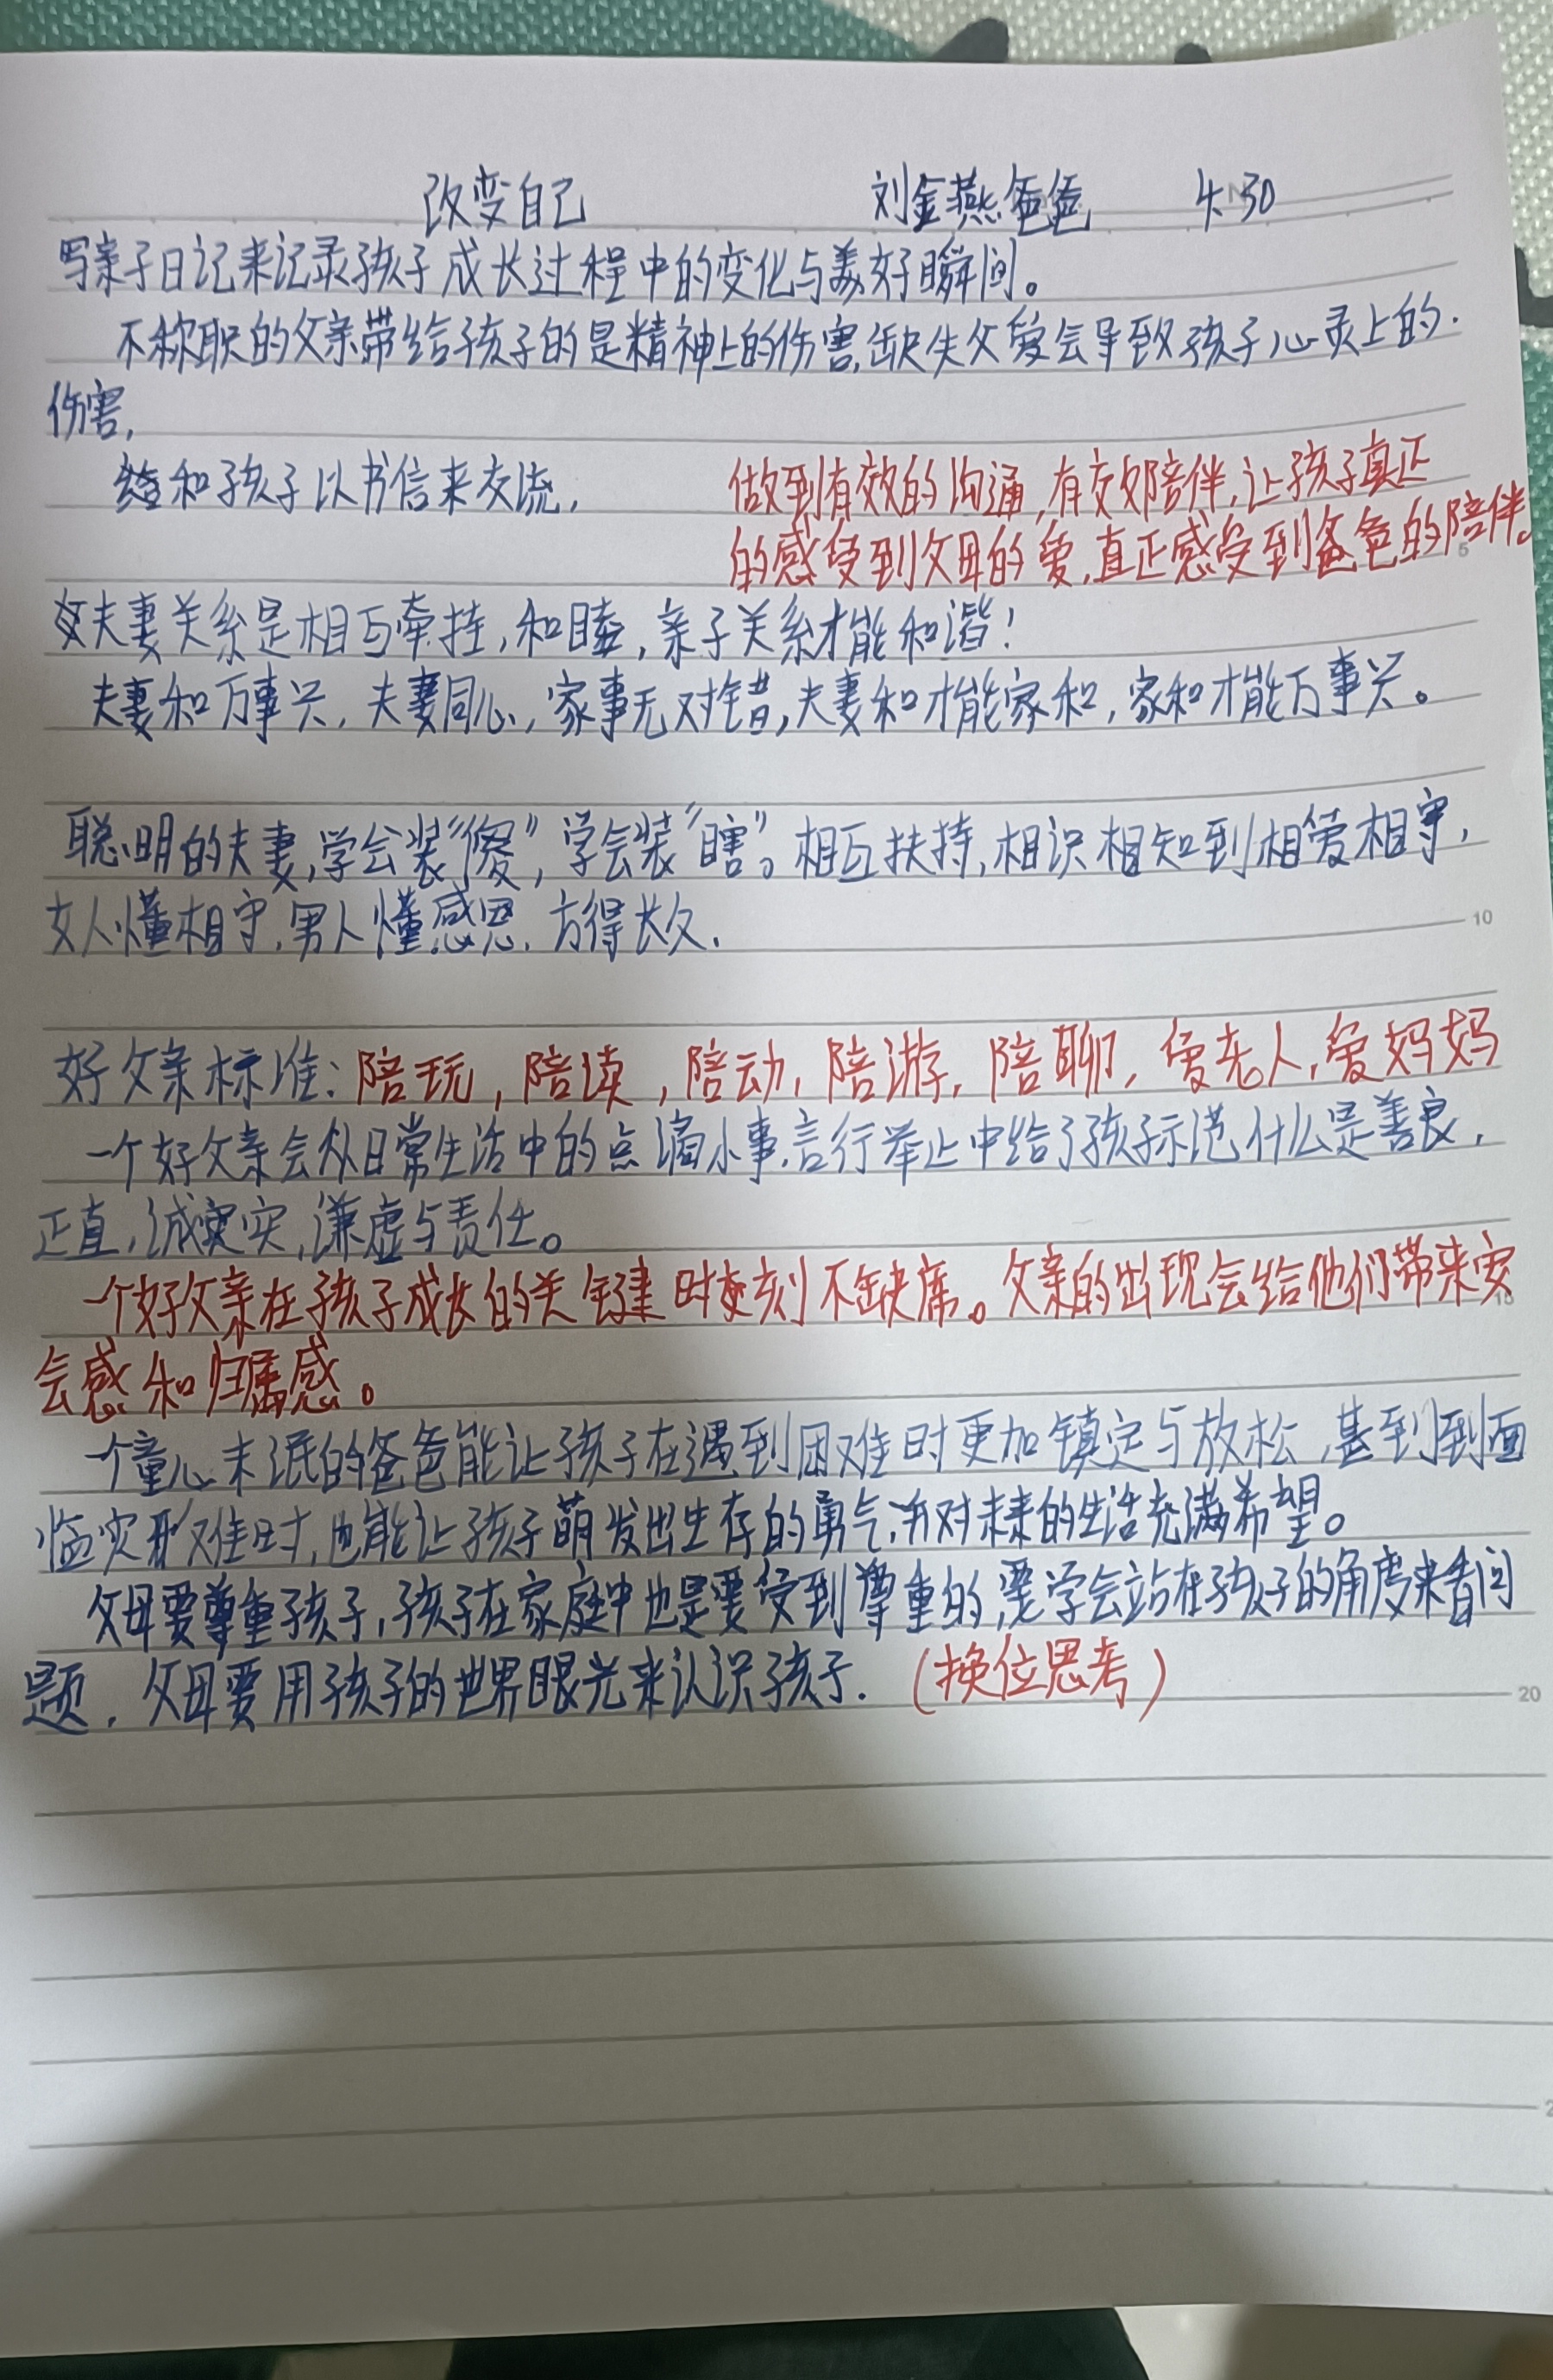 改变自己 刘金燕爸爸 4.30
写亲子日记来记录孩子成长过程中的变化与美好瞬间。
不称职的父亲带给孩子的是精神上的伤害,缺失父爱会导致孩子心灵上的.
伤害,
和孩子以书信来交流,
做到有效的沟通,有效陪伴,让孩子真正
的感受到父母的爱,真正感受到爸爸的陪伴。
5
夫妻关系是相互牵挂,和睦,亲子关系才能和谐!
夫妻和万事兴,夫妻同心,家事无对错,夫妻和才能家和,家和才能万事兴。
聪明的夫妻,学会装“傻”,学会装“瞎”。相互扶持,相识相知到相爱相守,
女人懂相守,男人懂感恩,方得长久.
10
好父亲标准:陪玩,陪读,陪动,陪游,陪聊,爱老人,爱妈妈
一个好父亲会从日常生活中的点滴小事,言行举止中给了孩子示范什么是善良,
正直,诚实,谦虚与责任。
一个好父亲在孩子成长的关键时刻不缺席。父亲的出现会给他们带来安
全感和归属感。
一个童心未泯的爸爸能让孩子在遇到困难时更加镇定与放松,甚到到面
临灾难时,也能让孩子萌发出生存的勇气,并对未来的生活充满希望。
父母要尊重孩子,孩子在家庭中也是要受到尊重的,要学会站在孩子的角度来看问
题,父母要用孩子的世界眼光来认识孩子.(换位思考)
20